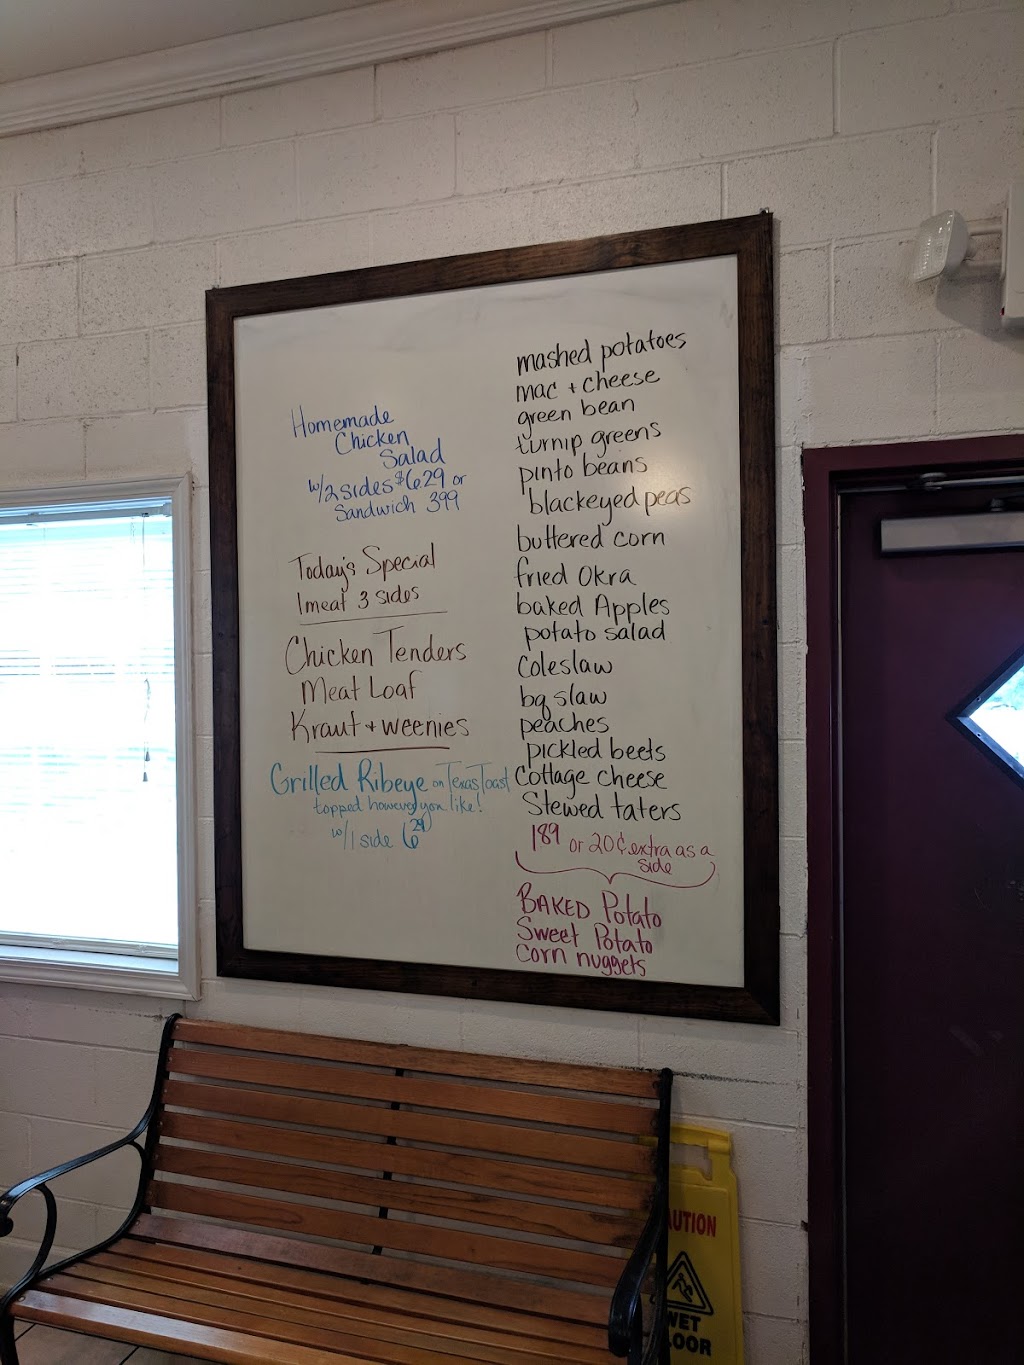 Homemade
Chicken
Salad
w/2 sides $6.29 or
Sandwich 399
Today's Special
1 meat 3 sides
Chicken Tenders
Meat Loaf
Kraut + weenies
Grilled Ribeye on Texas Toast
topped however you like!
w/1 side 6 29
mashed potatoes
mac + cheese
green bean
turnip greens
pinto beans
blackeyed peas
buttered corn
fried Okra
baked Apples
potato salad
Coleslaw
bq slaw
peaches
pickled beets
Cottage cheese
Stewed taters
189 or 20¢ extra as a
side
BAKED Potato
Sweet Potato
corn nuggets
AUTION
WET
LOOR